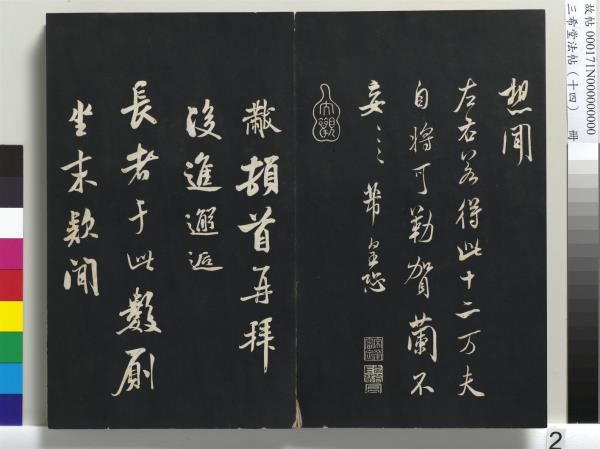 故帖 000171N000000000
三希堂法帖（十四） 冊
想聞
左右若得此十二万夫
自將可勒賀蘭不
妄〻〻 芾皇恐
黻頓首再拜
後進邂逅
長者于此數厠
坐末款聞
2